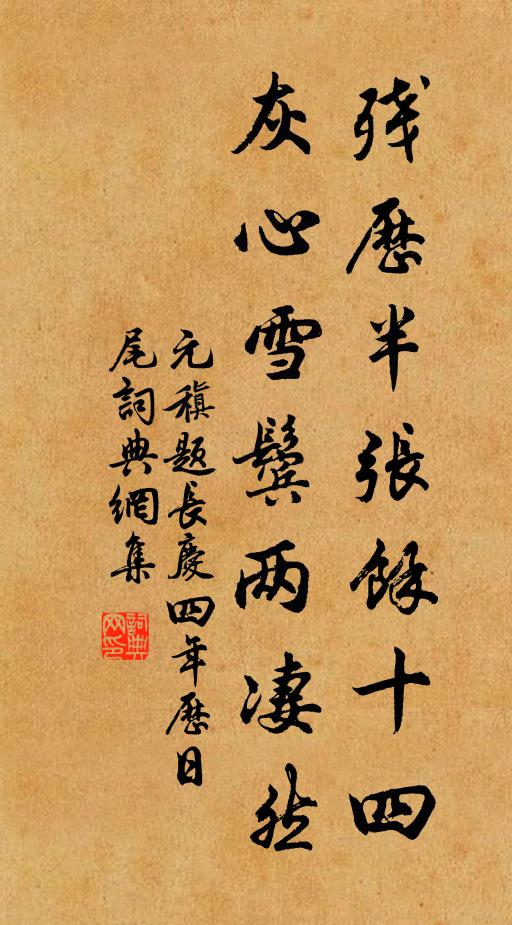 残歷半張餘十四
灰心雪鬢兩凄然
元稹題長慶四年歷日
尾詞典網集
詞典
网印